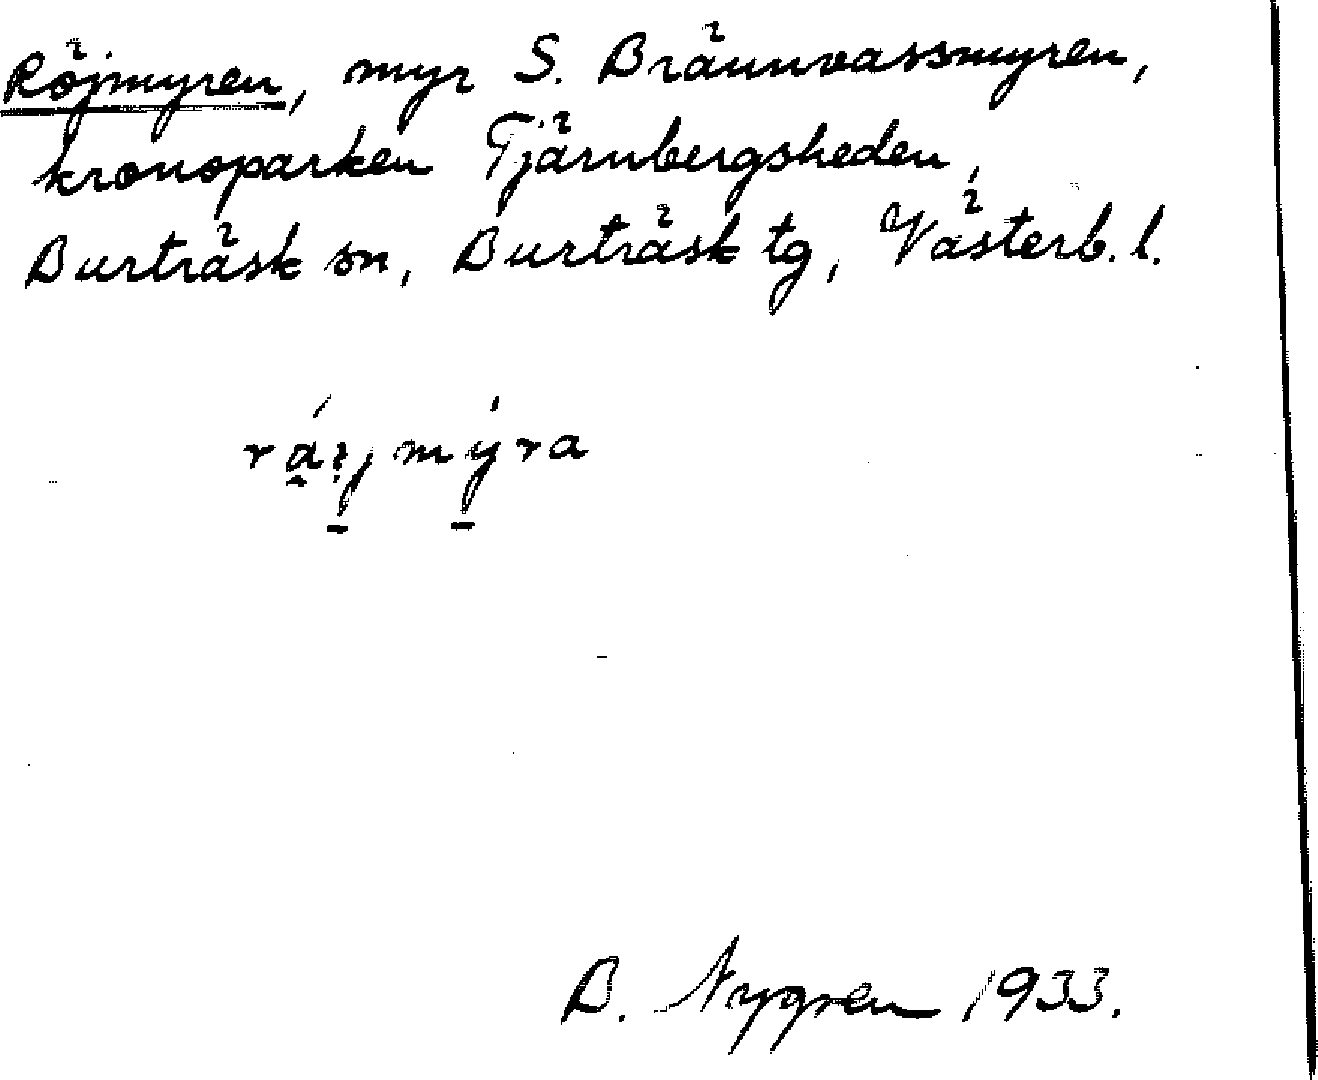 Röjmyren, myr S. Brännvassmyren,
kronoparken Tjärnbergsheden,
Burträsk sn, Burträsk tg, Västerb. l.
B. Nygren 1933.